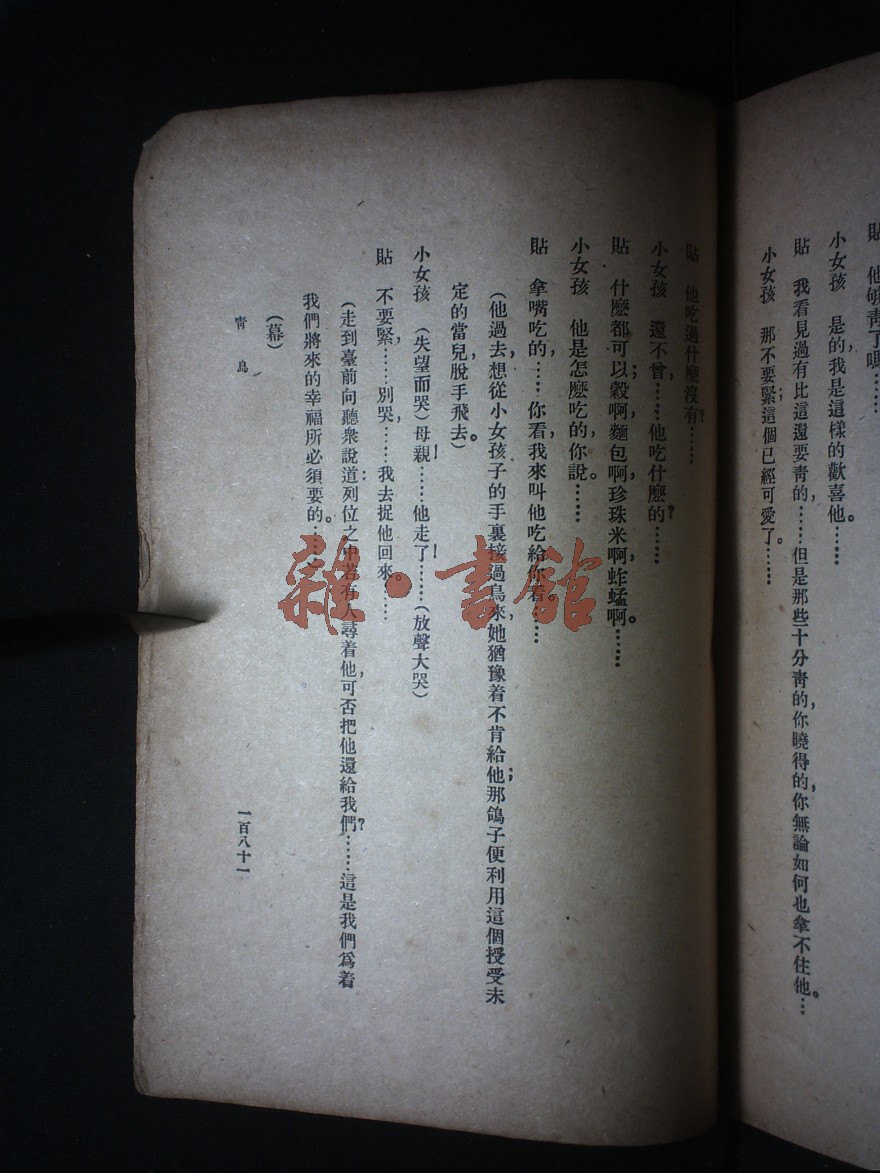 貼　他够靑了嗎……
小女孩　是的，我是這樣的歡喜他。
貼　我看見過有比這還要靑的，……但是那些十分靑的，你曉得的，你無論如何也拿不住他。…
小女孩　那不要緊；這個已經可愛了。……
貼　他吃過什麼沒有？……
小女孩　還不曾，……他吃什麼的？……
貼　什麼都可以；穀啊，麵包啊，珍珠米啊，蚱蜢啊。……
小女孩　他是怎麼吃的，你說。……
貼　拿嘴吃的……你看，我來叫他吃給你看。……
（他過去，想從小女孩子的手裏接過鳥來，她猶豫着不肯給他；那鴿子便利用這個授受未
定的當兒，脫手飛去。）
小女孩　（失望而哭）母親！……他走了！……（放聲大哭）
貼　不要緊，……別哭，……我去捉他回來。……
（走到臺前，向聽衆說道：列位之中若有人尋着他，可否把他還給我們？……這是我們爲着
我們將來的幸福所必須要的。……）
（幕）
靑鳥
一百八十一
雜·書館